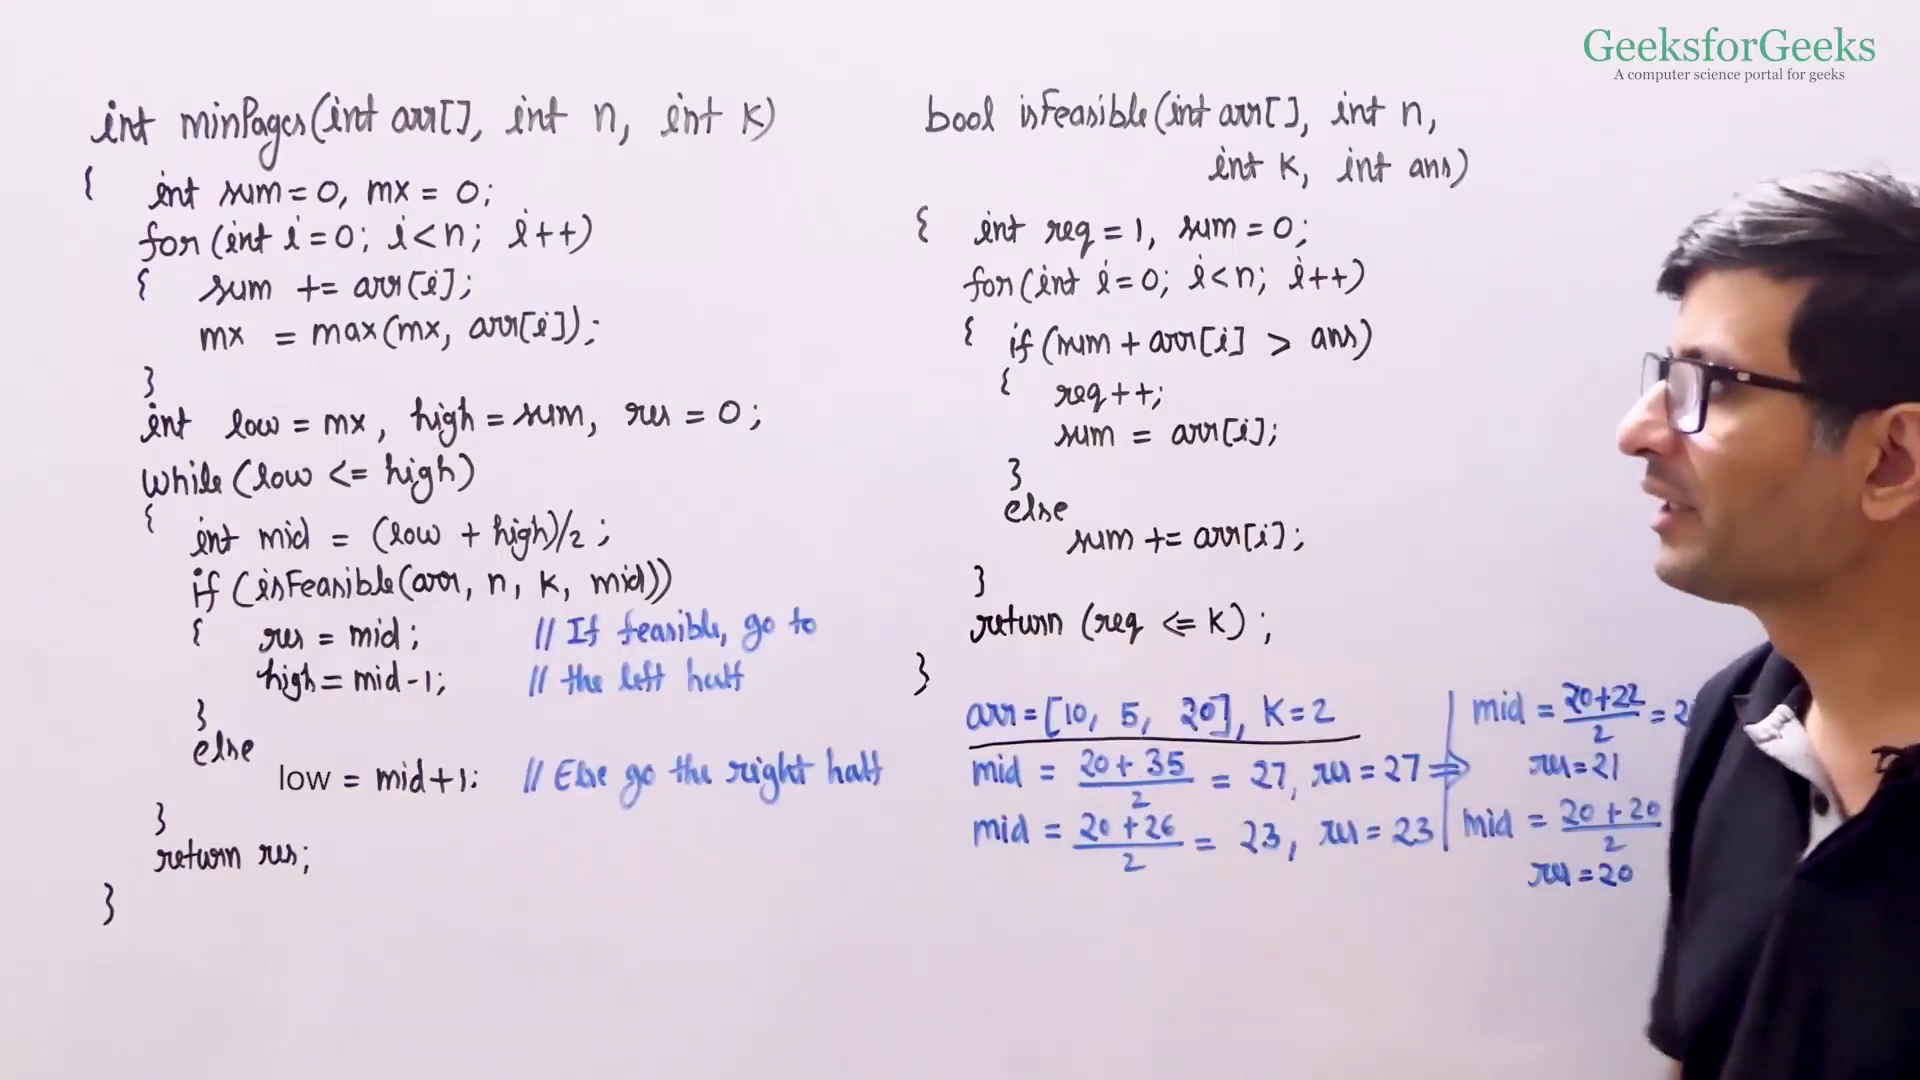 GeeksforGeeks
A computer science portal for geeks
int minPages(int arr[], int n, int k)
{ int sum = 0, mx = 0;
for (int i = 0; i < n; i++)
{ sum += arr[i];
mx = max(mx, arr[i]);
}
int low = mx, high = sum, res = 0;
while (low <= high)
{
int mid = (low + high)/2;
if (isFeasible(arr, n, k, mid))
{ res = mid; // If feasible, go to
high = mid-1; // the left half
}
else
low = mid+1: // Else go the right half
}
return res;
}
bool isFeasible(int arr[], int n,
int k, int ans)
{ int req = 1, sum = 0;
for (int i = 0; i < n; i++)
{ if (sum + arr[i] > ans)
{ req++;
sum = arr[i];
}
else
sum += arr[i];
}
return (req <= k);
}
arr = [10, 5, 20], K = 2
mid = 20 + 35 / 2 = 27, res = 27 ⇒
mid = 20 + 26 / 2 = 23, res = 23
mid = 20+22 / 2 =
res = 21
mid = 20 + 20 / 2
res = 20